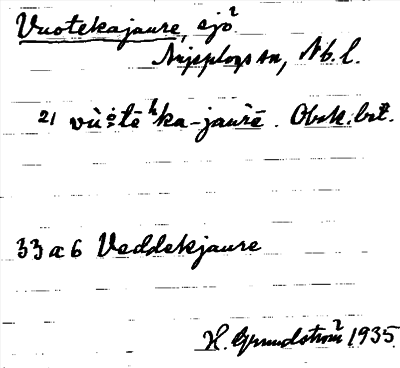 Vuotekajaure, sjö
Arjeplogs sn, Nb. l.
21 vùo̊tē ʰka-jaùrē. Obek. bet.
33 a 6 Veddekjaure
H. Grundström 1935